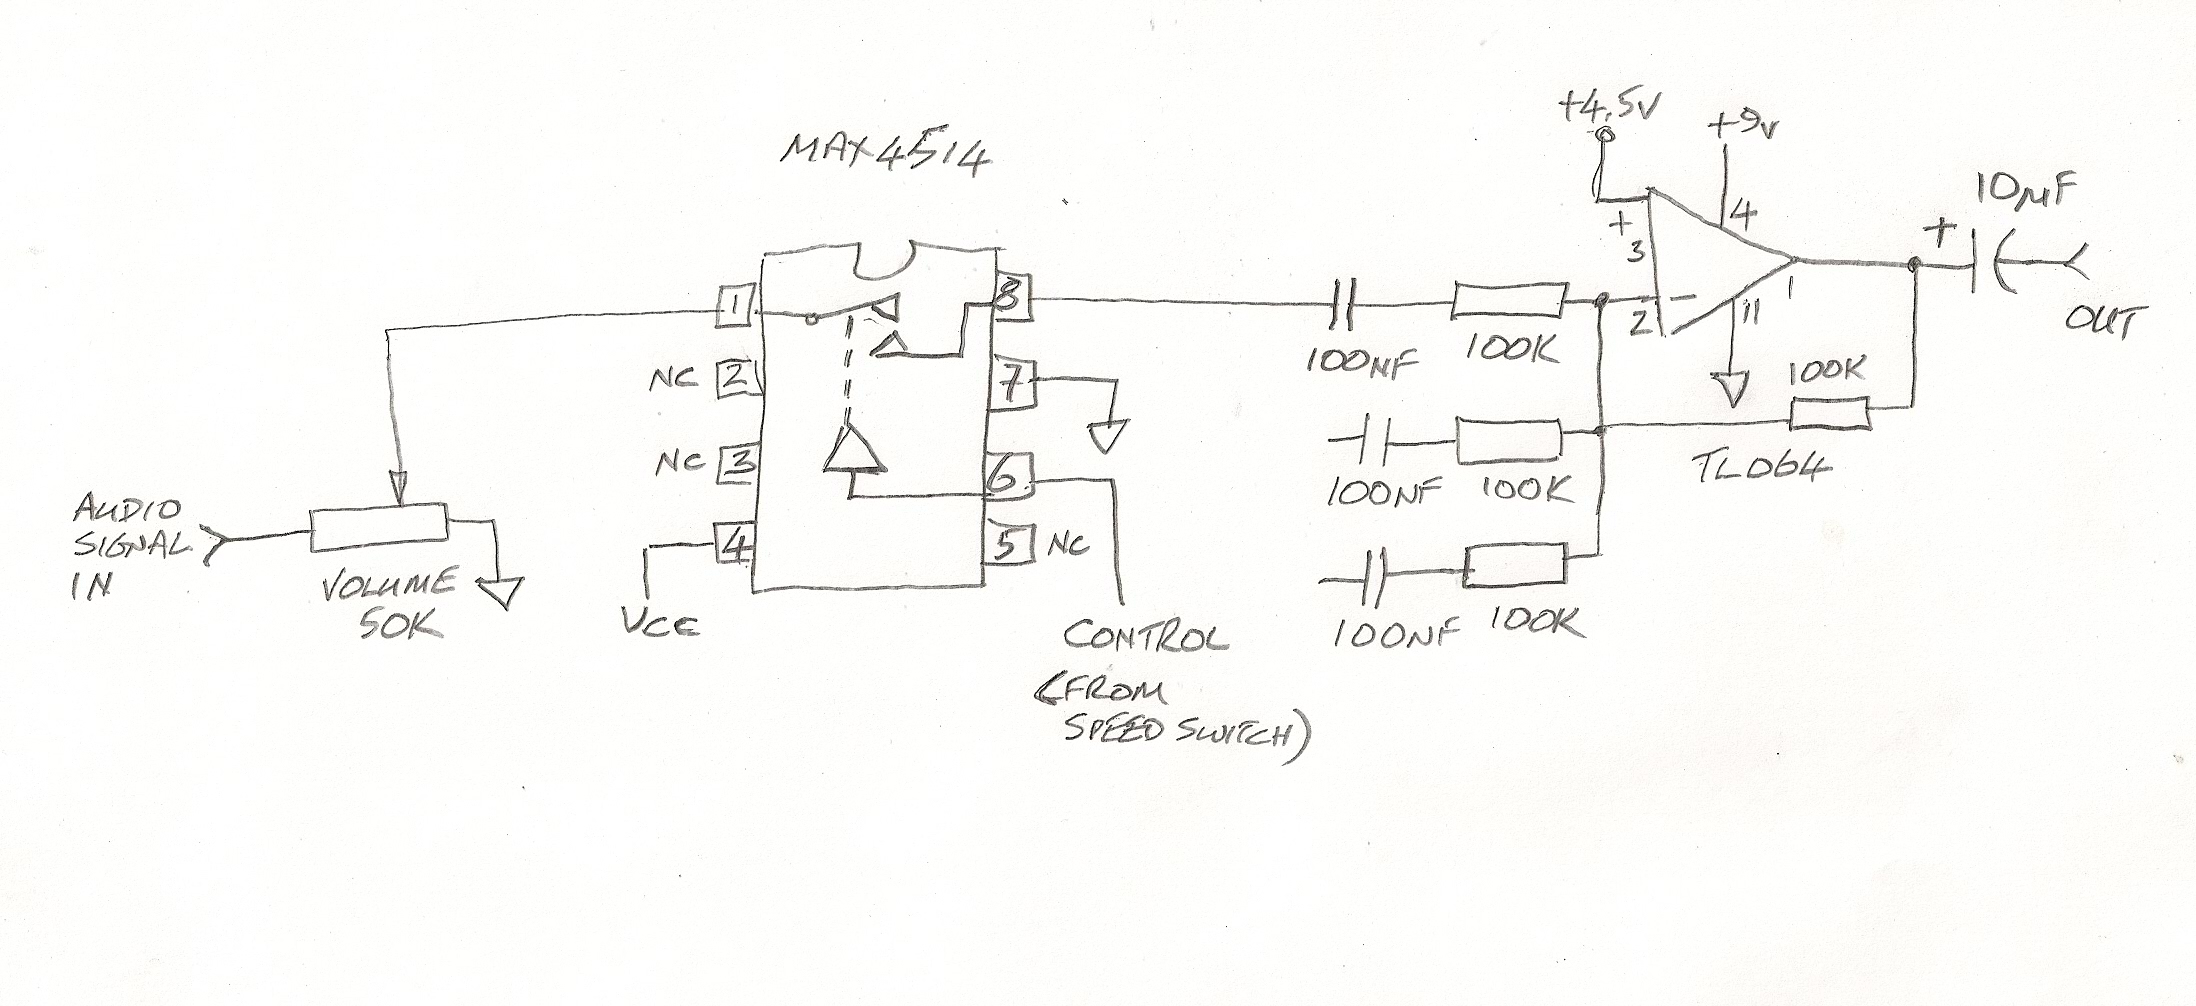 MAX4514
+4.5V
+9V
10µF
+
4
+
3
2
-
11
1
OUT
1
8
NC 2
7
NC 3
6
4
5 NC
100NF
100K
100K
TL064
100NF
100K
100NF
100K
AUDIO
SIGNAL
IN
VOLUME
50K
VCC
CONTROL
(FROM
SPEED SWITCH)